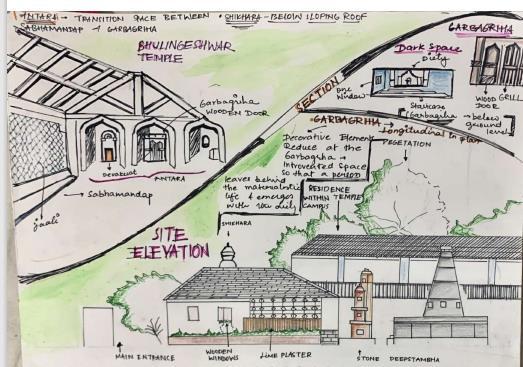 ANTARAL → TRANSITION SPACE BETWEEN
SABHAMANDAP & GARBAGRIHA
• SHIKHARA - BELOW SLOPING ROOF
BHULINGESHWAR
TEMPLE
GARBAGRIHA
Dark Space
Diety
One
Window
WOOD GRILL
DOOR
Staircase
Garbagriha → below
ground
level
SECTION
GARBAGRIHA
→ Longitudinal in plan
Garbagriha
WOODEN DOOR
Devakust
ANTARA
← Sabhamandap
Jaali
Decorative Element
Reduce at the
Garbagriha →
Introverted Space
so that a PERSON
leaves behind
the materialistic
life & emerges
with
VEGETATION
RESIDENCE
WITHIN TEMPLE
CAMPUS
SHIKHARA
SITE
ELEVATION
MAIN ENTRANCE
WOODEN
WINDOWS
LIME PLASTER
STONE DEEPSTAMBHA